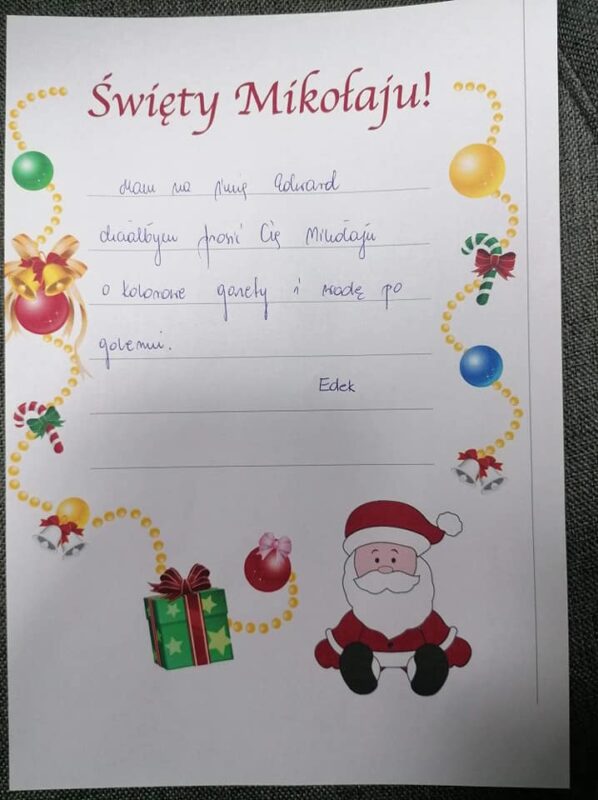 Święty Mikołaju!
Mam na imię Edward
chciałbym prosić Cię Mikołaju
o kolorowe gazety i wodę po
goleniu.
Edek